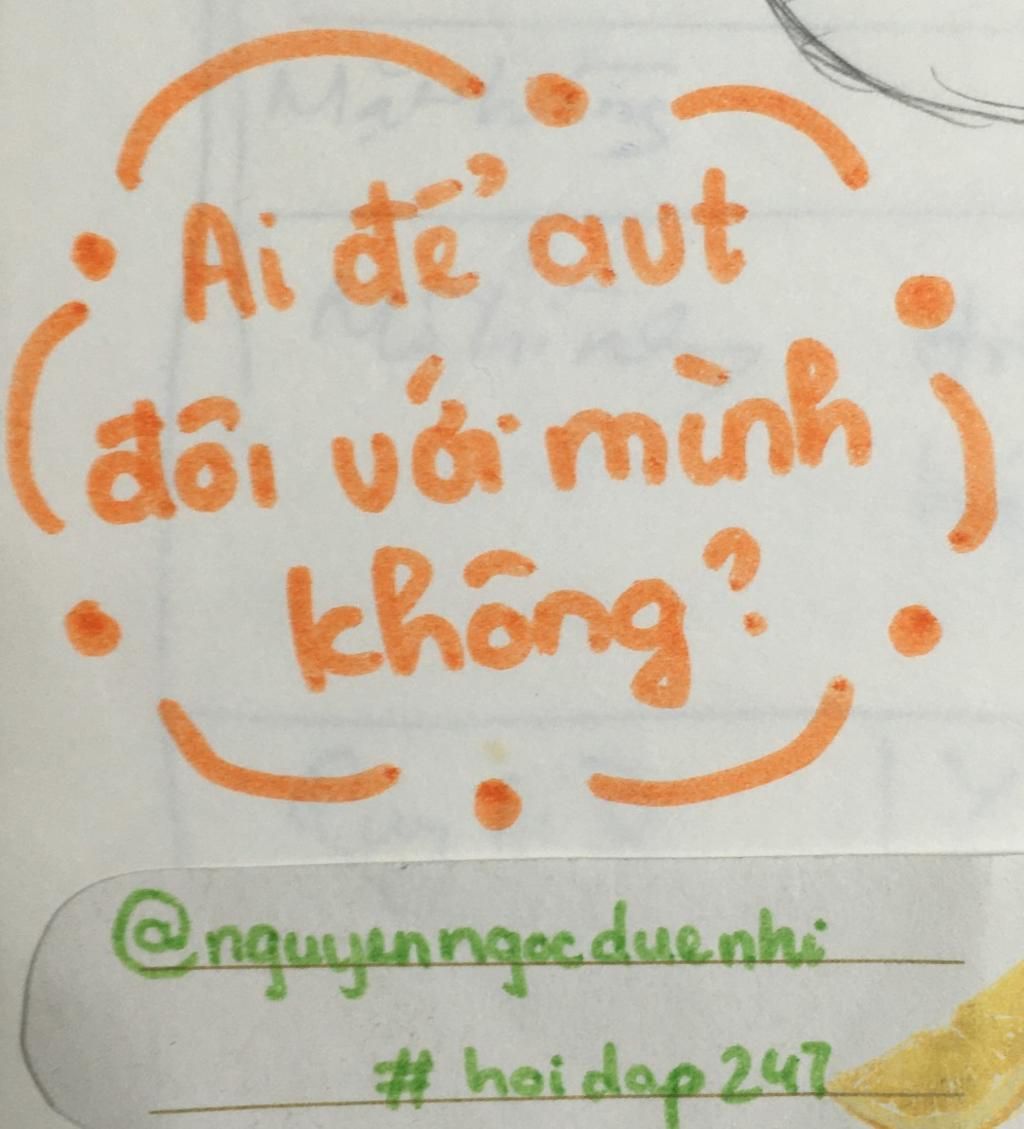 Ai để aut
đôi với mình
không?
@nguyenngocduenhi
# hoidap247